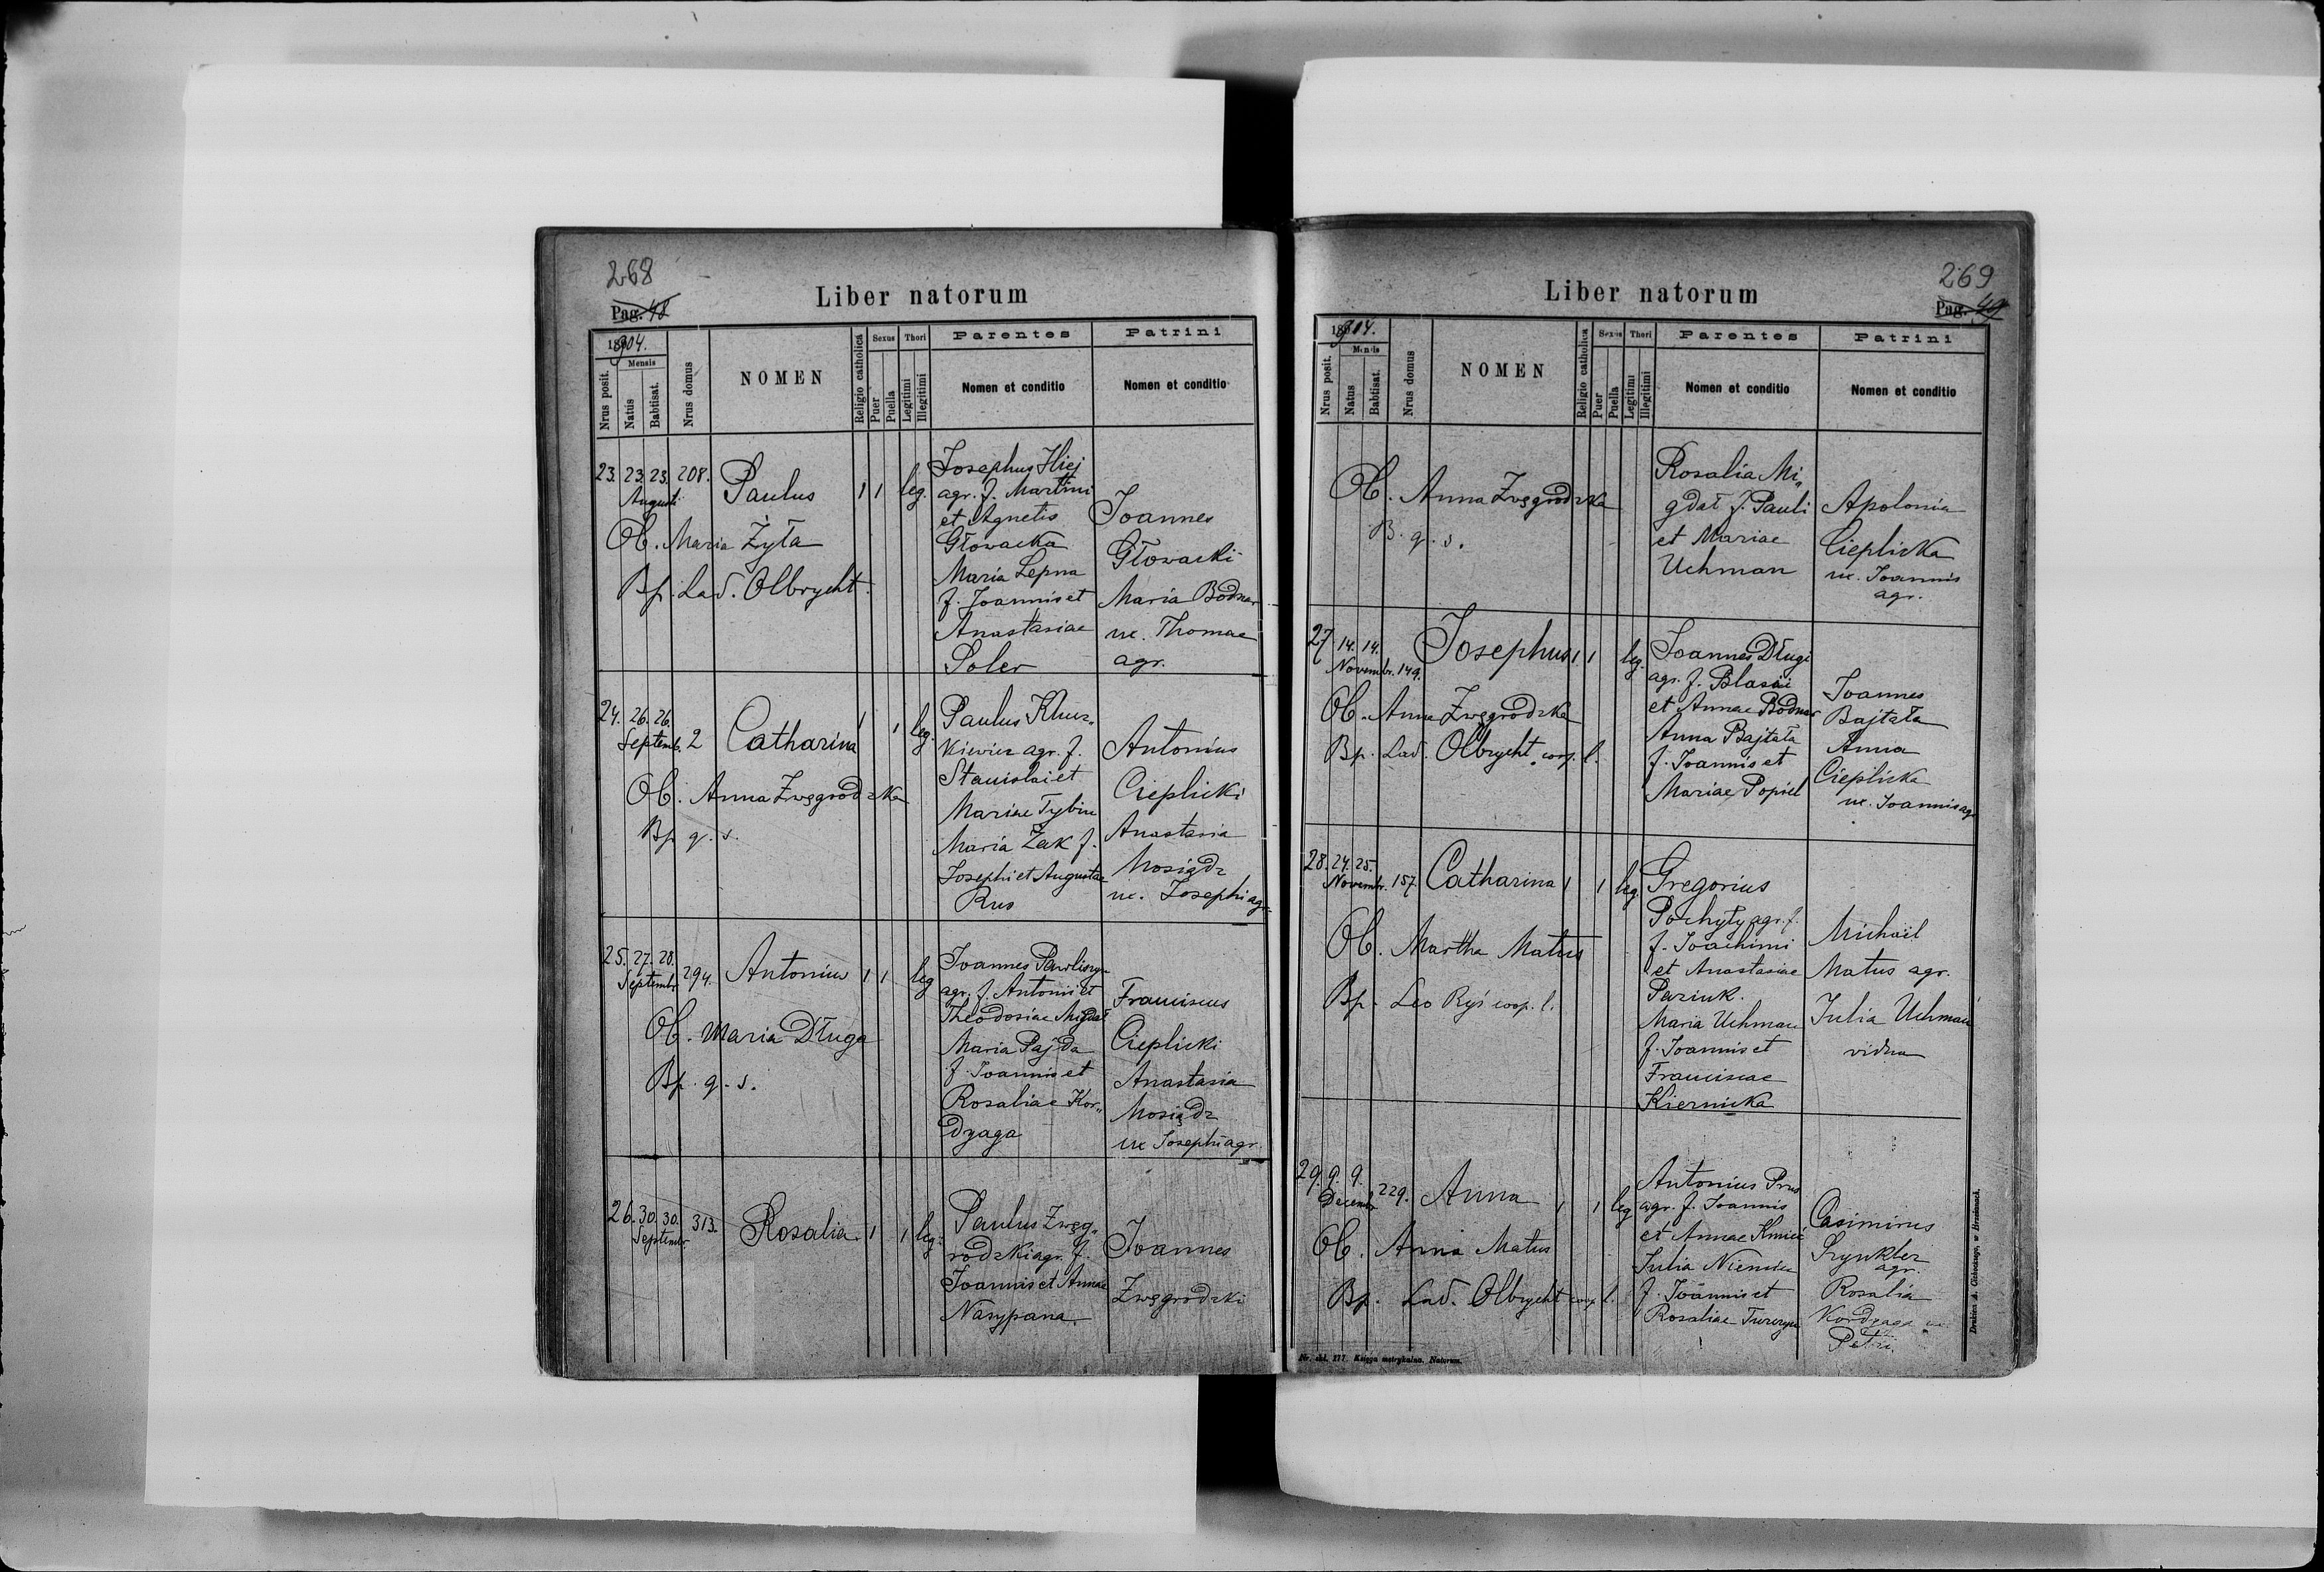 268
Pag. 48
Liber natorum
1904.
Nrus posit.
Mensis
Natus
Babtisat.
Nrus domus
NOMEN
Religio catholica
Sexus
Puer
Puella
Thori
Legitimi
Illegitimi
Parentes
Nomen et conditio
Patrini
Nomen et conditio
23. 23. 23. 208.
Augusti
Paulus 1 1 leg.
Ob. Maria Żyła
Bp. Lad. Olbrycht.
Josephus Hlej
agr. f. Martini
et Agnetis
Głowacka
Maria Lepna
f. Joannis et
Anastasiae
Soler
Joannes
Głowacki
Maria Bodnar
ux. Thomae
agr.
24. 26. 26.
Septemb. 2 Catharina 1 1 leg.
Ob. Anna Zwęgrodzka
Bp. q. s.
Paulus
kiewicz agr. f.
Stanislai et
Mariae
Maria Żak f.
Josephi et Augustae
Rus
Antonius
Cieplicki
Anastasia
Mosiądz
ux. Josephi agr.
25. 27. 28.
Septembr. 294. Antonius 1 1 leg
Ob. Maria Długa
Bp. q. s.
Joannes Pawliszyn
agr. f. Antonii et
Theodosiae Migdał
Maria Pajda
f. Joannis et
Rosaliae Kor„
dyaga
Franciscus
Cieplicki
Anastasia
Mosiądz
ux Josephi agr.
26. 30. 30. 313.
Septembr
Rosalia 1 1 leg.
Paulus Zwęg„
rodzki agr. f.
Joannis et Annae
Nasypana.
Joannes
Zwęgrodzki
269
Pag. 49
Liber natorum
1904.
Nrus posit.
Mensis
Natus
Babtisat.
Nrus domus
NOMEN
Religio catholica
Sexus
Puer
Puella
Thori
Legitimi
Illegitimi
Parentes
Nomen et conditio
Patrini
Nomen et conditio
Ob. Anna Zwęgrodzka
B. q. s.
Rosalia Mi„
gdał f. Pauli
et Mariae
Uchman
Apolonia
Cieplicka
ux. Joannis
agr.
27 14. 14.
Novembr. 149. Josephus 1 1 leg.
Ob. Anna Zwęgrodzka
Bp. Lad. Olbrycht coop. l.
Joannes Długi
agr. f. Blasii
et Annae Bodnar
Anna Bajtała
f. Joannis et
Mariae Popiel
Joannes
Bajtała
Anna
Cieplicka
ux. Joannis agr
28. 24. 25.
Novembr. 157. Catharina 1 1 leg
Ob. Martha Matus
Bp. Leo Ryś coop. l.
Gregorius
Pochyły agr. f.
f. Joachimi
et Anastasiae
Pariuk.
Maria Uchman
f. Joannis et
Franciscae
Kiernicka
Michaël
Matus agr.
Julia Uchman
vidua
29. 9. 9.
Decembr 229. Anna 1 1 leg
Ob. Anna Matus
Bp. Lad. Olbrycht coop. l.
Antonius Prus
agr. f. Joannis
et Annae Kmieć
Julia
f. Joannis et
Rosaliae
Casimirus
Szynkler
agr.
Rosalia
Kordyaga ux.
Petri
Nr. skł. 177. Księga metrykalna. Natorum.